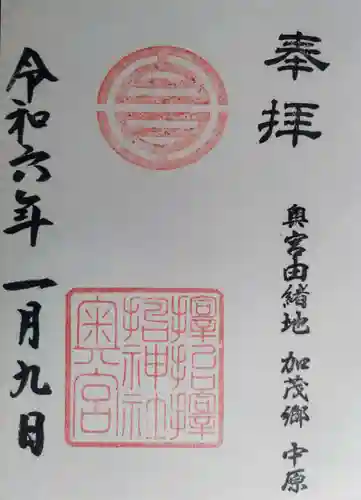 奉拝
奥宮由緒地 加茂郷 中原
招神社
奥宮
令和六年 一月九日